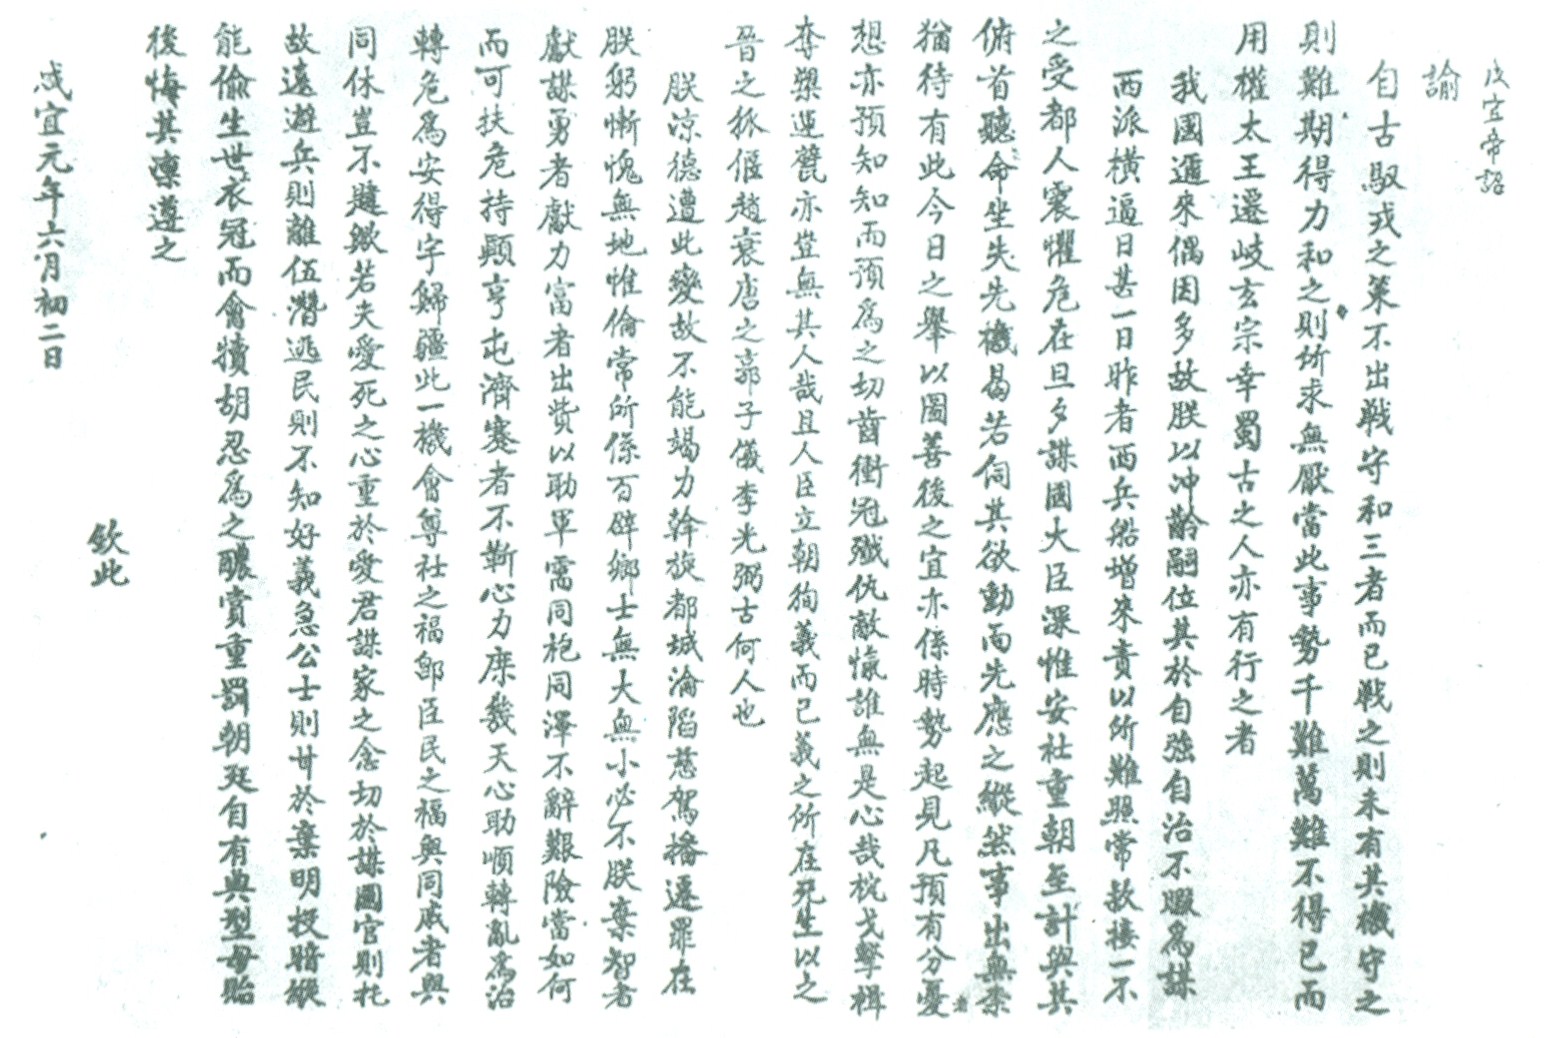 咸宜帝詔
諭
自古馭戎之策不出戰守和三者而已戰之則未有其機守之
則難期得力和之則所求無厭當此事勢千難萬難不得已而
用權太王遷岐玄宗幸蜀古之人亦有行之者
我國邇來偶因多故朕以冲齡嗣位其於自強自治不暇爲謀
西派橫逼日甚一日昨者西兵船增來責以所難照常款接一不
之受都人震懼危在旦夕謀國大臣深惟安社重朝至計與其
俯首聽命坐失先機曷若伺其欲動而先應之縱然事出無柰
猶待有此今日之舉以圖善後之宜亦係時勢起見凡預有分憂者
想亦預知知而預爲之切齒衝冠殲仇敵愾誰無是心哉枕戈擊楫
奪槊運甓亦豈無其人哉且人臣立朝徇義而已義之所在死生以之
晉之狐偃趙衰唐之郭子儀李光弼古何人也
朕凉德遭此變故不能竭力斡旋都城淪陷慈駕播遷罪在
朕躬慚愧無地惟倫常所係百辟鄉士無大無小必不朕棄智者
獻謀勇者獻力富者出貲以助軍需同袍同澤不辭艱險當如何
而可扶危持顚亨屯濟蹇者不靳心力庶幾天心助順轉亂爲治
轉危爲安得宇歸疆此一機會尊社之福卽臣民之福與同戚者與
同休豈不韙歟若夫愛死之心重於愛君謀家之念切於謀國官則托
故遠避兵則離伍潛逃民則不知好義急公士則甘於棄明投暗縱
能偷生世衣冠而會犢胡忍爲之醲賞重罰朝廷自有典型毋貽
後悔其凛遵之
欽此
咸宜元年六月初二日